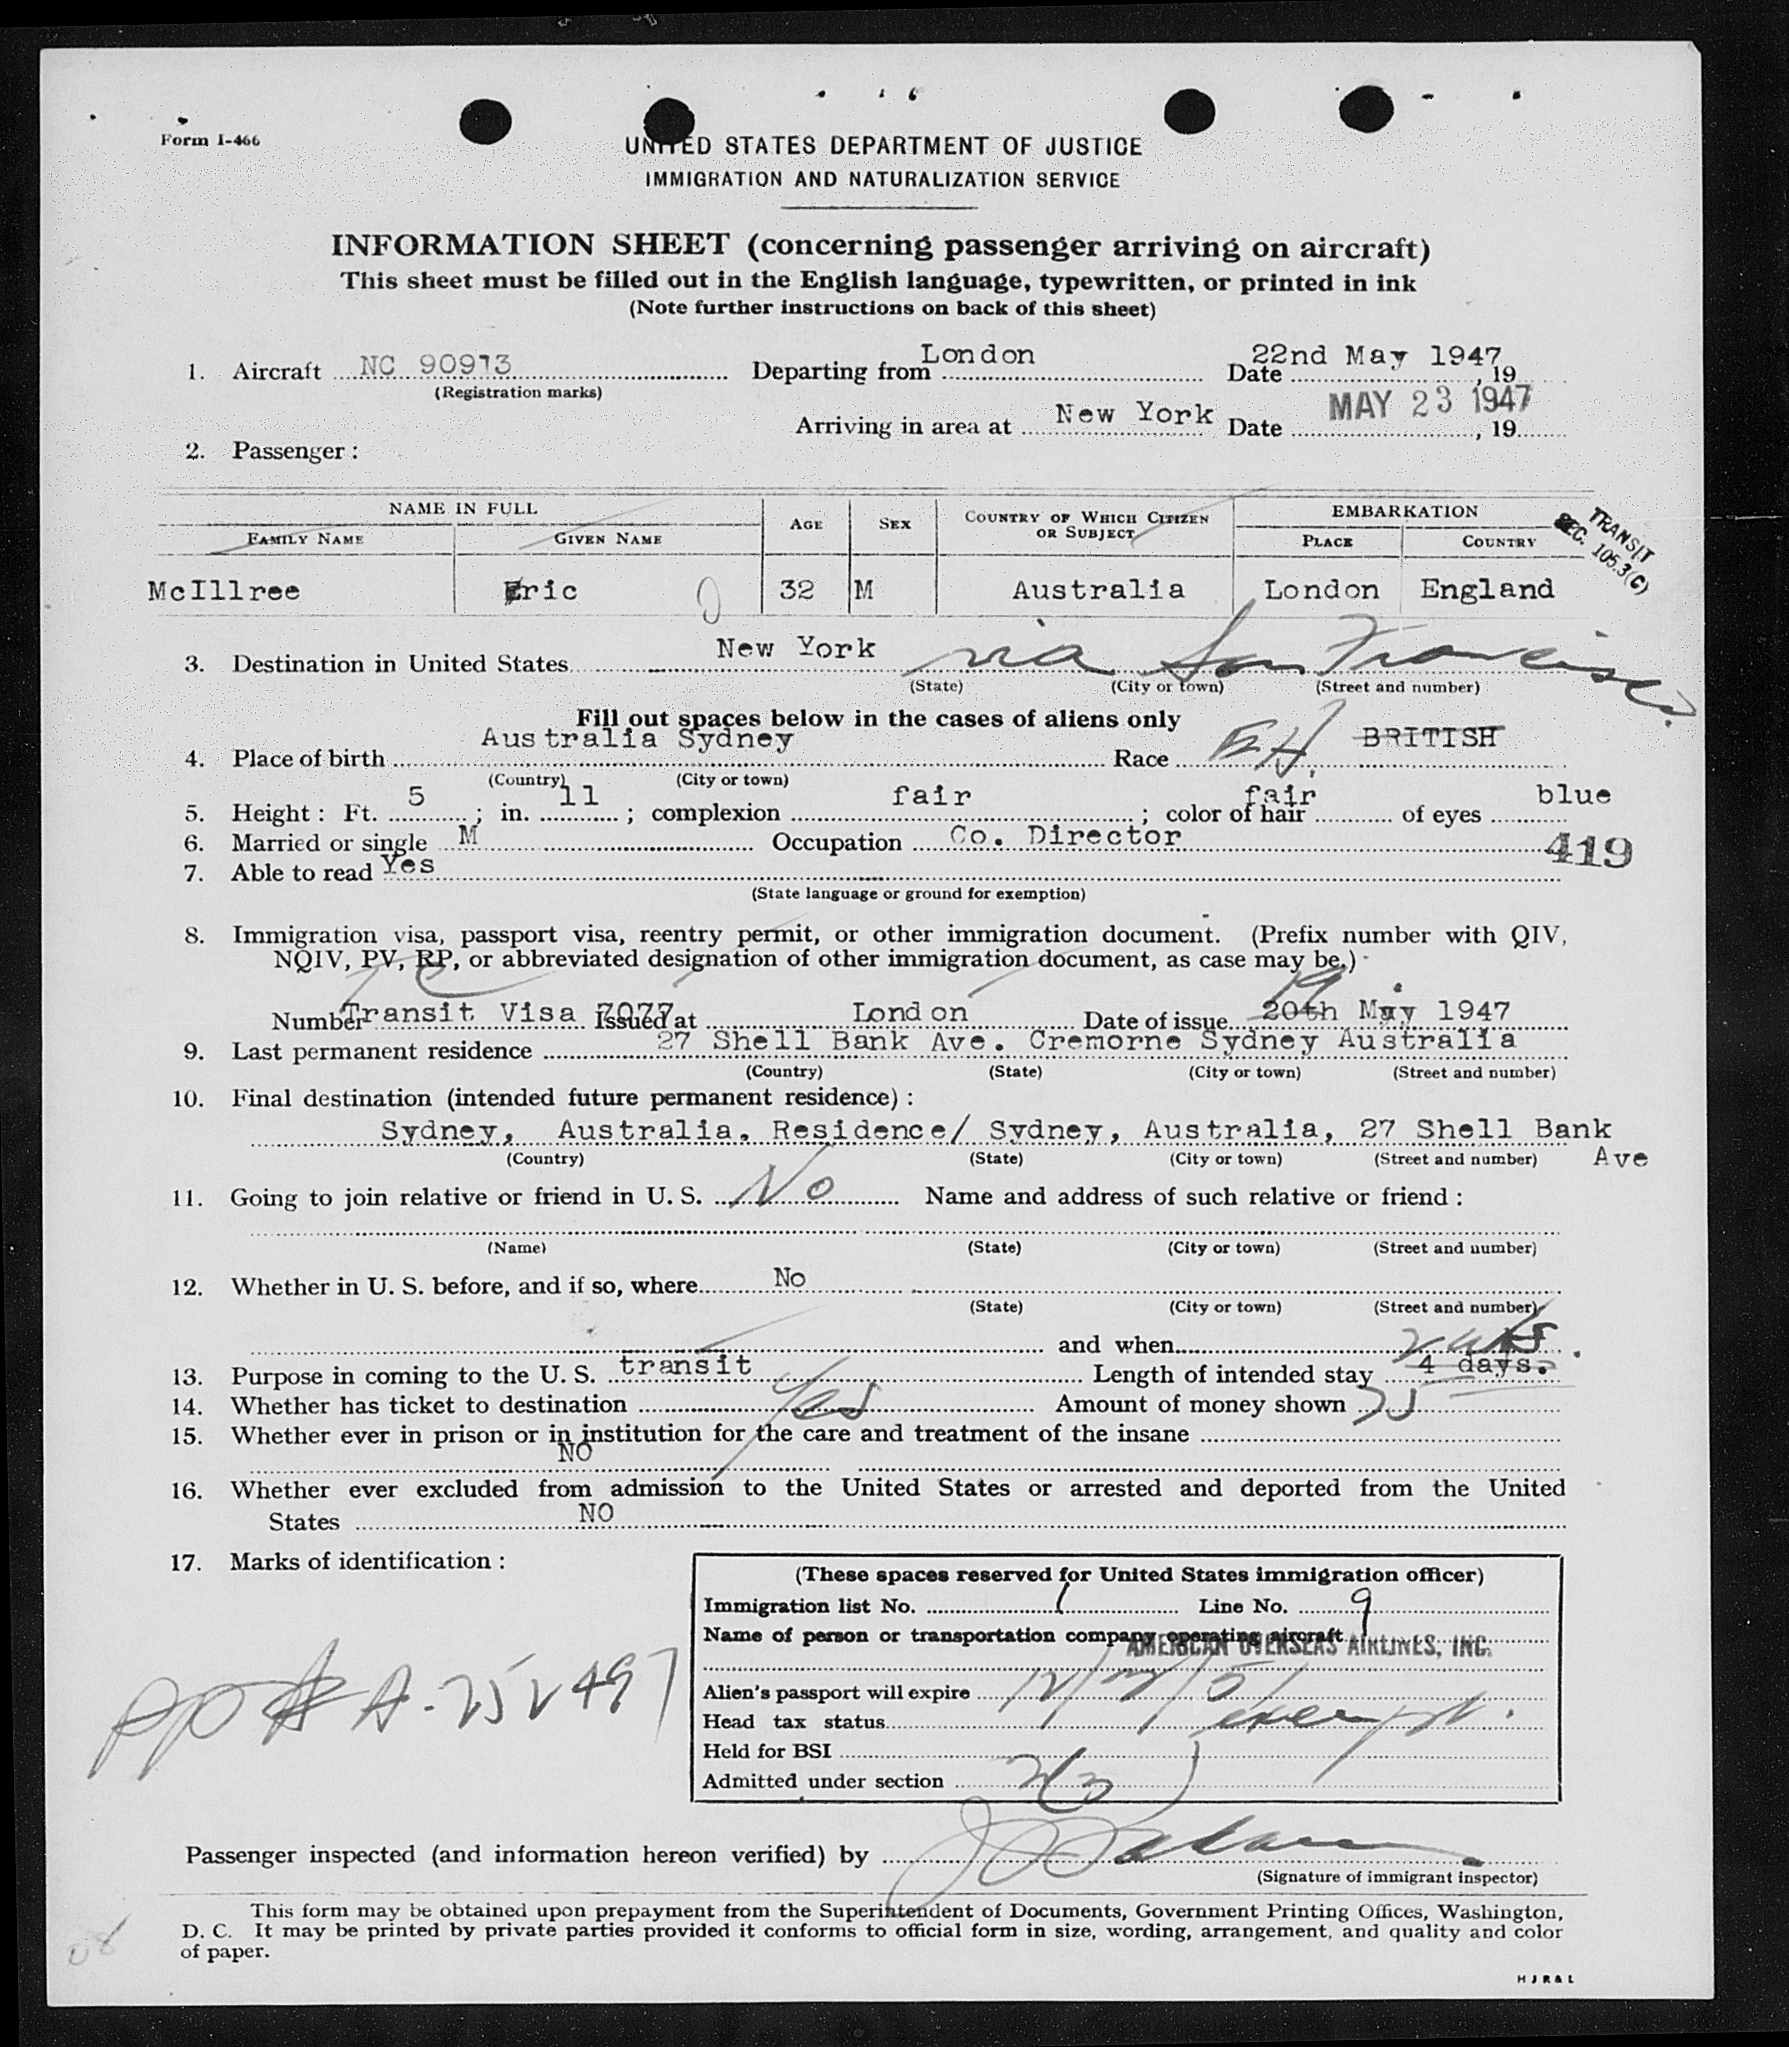 Form I-466
UNITED STATES DEPARTMENT OF JUSTICE
IMMIGRATION AND NATURALIZATION SERVICE
INFORMATION SHEET (concerning passenger arriving on aircraft)
This sheet must be filled out in the English language, typewritten, or printed in ink
(Note further instructions on back of this sheet)
1. Aircraft NC 90913 Departing from London Date 22nd May 1947, 19
(Registration marks)
Arriving in area at New York Date MAY 23 1947, 19
2. Passenger:
NAME IN FULL AGE SEX COUNTRY OF WHICH CITIZEN OR SUBJECT EMBARKATION
FAMILY NAME GIVEN NAME PLACE COUNTRY
TRANSIT
SEC. 105.3(C)
McIllree Eric 32 M Australia London England
3. Destination in United States New York via San Francisco.
(State) (City or town) (Street and number)
Fill out spaces below in the cases of aliens only
4. Place of birth Australia Sydney Race BRITISH
(Country) (City or town)
5. Height: Ft. 5; in. 11; complexion fair; color of hair fair of eyes blue
6. Married or single M Occupation Co. Director
419
7. Able to read Yes
(State language or ground for exemption)
8. Immigration visa, passport visa, reentry permit, or other immigration document. (Prefix number with QIV,
NQIV, PV, RP, or abbreviated designation of other immigration document, as case may be.)
Number Transit Visa 7077 Issued at London Date of issue 20th 19 May 1947
9. Last permanent residence 27 Shell Bank Ave. Cremorne Sydney Australia
(Country) (State) (City or town) (Street and number)
10. Final destination (intended future permanent residence):
Sydney, Australia. Residence/ Sydney, Australia, 27 Shell Bank
(Country) (State) (City or town) (Street and number) Ave
11. Going to join relative or friend in U. S. No Name and address of such relative or friend:
(Name) (State) (City or town) (Street and number)
12. Whether in U. S. before, and if so, where No
(State) (City or town) (Street and number)
and when
13. Purpose in coming to the U. S. transit Length of intended stay 4 days. 2 wks.
14. Whether has ticket to destination Yes Amount of money shown 75
15. Whether ever in prison or in institution for the care and treatment of the insane
NO
16. Whether ever excluded from admission to the United States or arrested and deported from the United
States NO
17. Marks of identification:
(These spaces reserved for United States immigration officer)
Immigration list No. 1 Line No. 9
Name of person or transportation company operating aircraft
AMERICAN OVERSEAS AIRLINES, INC.
PP # A-252497
Alien's passport will expire
Head tax status exempt.
Held for BSI
Admitted under section 3(3)
Passenger inspected (and information hereon verified) by
(Signature of immigrant inspector)
This form may be obtained upon prepayment from the Superintendent of Documents, Government Printing Offices, Washington,
D. C. It may be printed by private parties provided it conforms to official form in size, wording, arrangement, and quality and color
of paper.
H J R & L